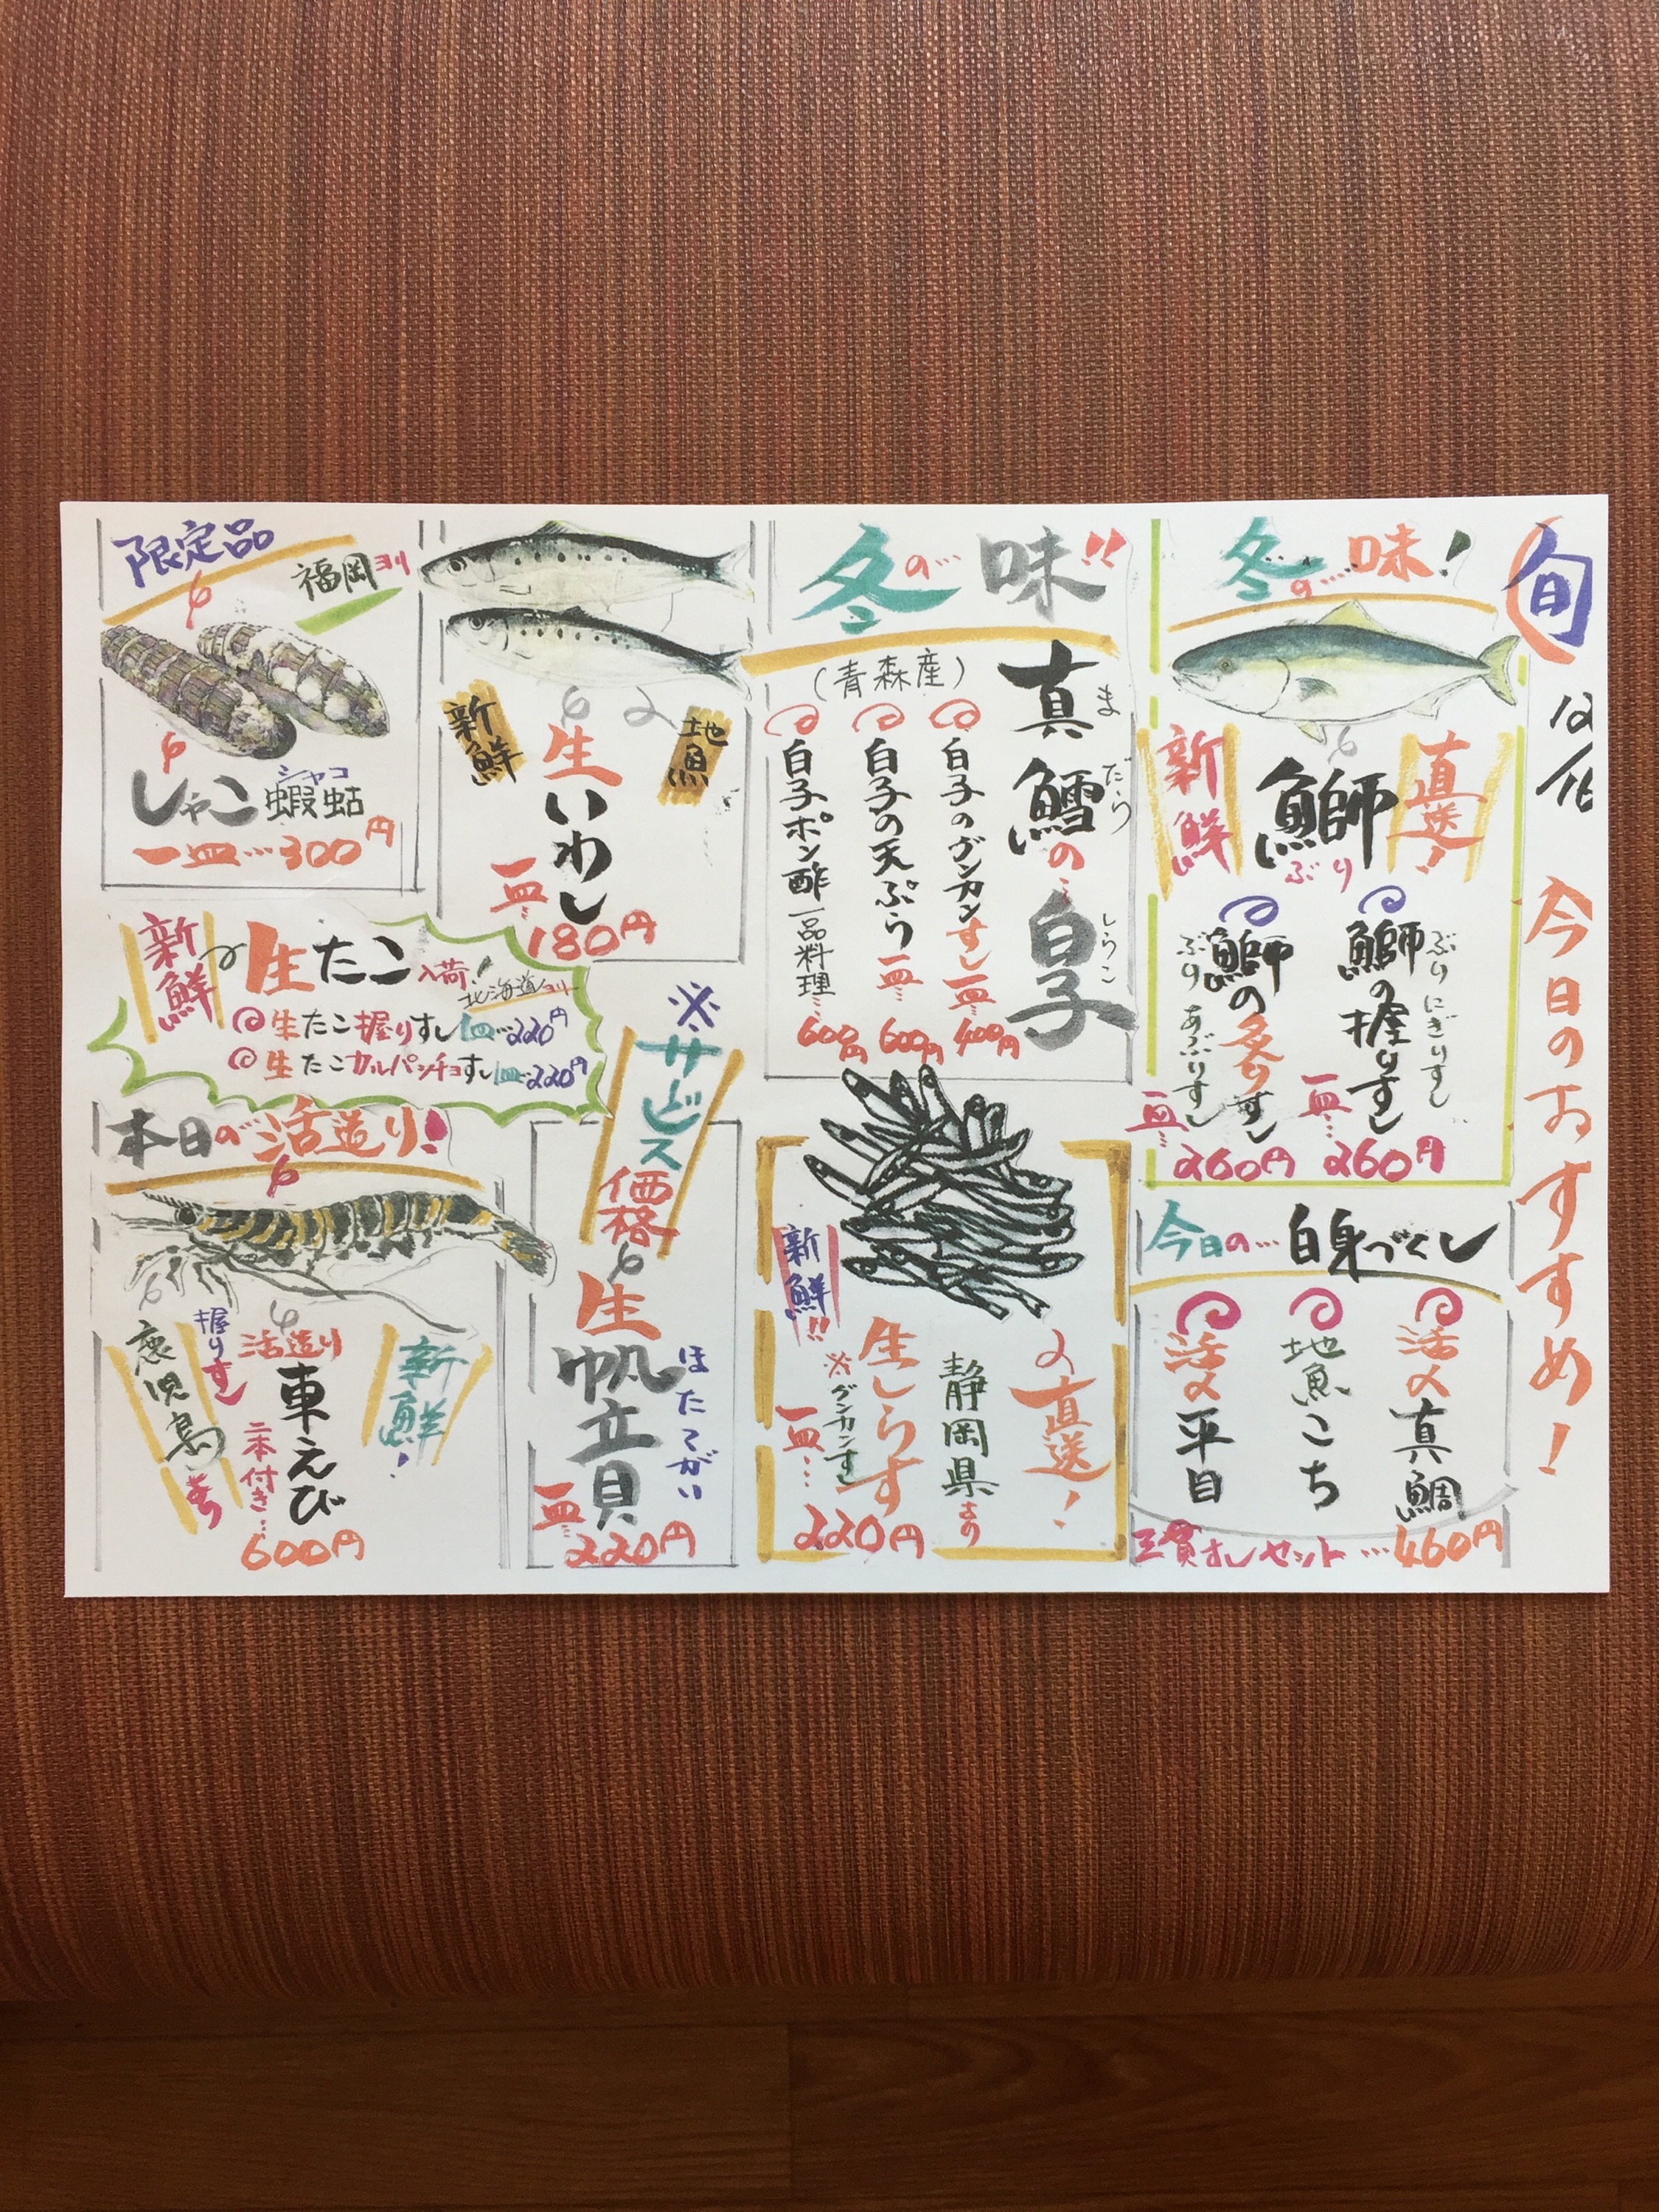 旬
今日のおすすめ!
冬の味!
新鮮
鰤
ぶり
直送!
鰤の握りすし
ぶり にぎりすし
一皿…260円
鰤の炙りすし
ぶり あぶりすし
一皿…260円
今日の…白身づくし
活〆真鯛
地魚こち
活〆平目
三貫すしセット…460円
冬の味!!
(青森産)
真鱈の白子
まだら しらこ
白子のグンカンすし一皿…400円
白子の天ぷら一皿…600円
白子ポン酢一品料理…600円
直送!
静岡県より
新鮮!!
生しらす
※グンカンすし
一皿…220円
新鮮
地魚
生いわし
一皿…180円
※サービス価格
生帆立貝
ほたてがい
一皿…220円
限定品
福岡ヨリ
しゃこ
蝦蛄
シャコ
一皿…300円
新鮮
生たこ入荷!
北海道ヨリ
生たこ握りすし一皿…220円
生たこカルパッチョすし一皿…220円
本日の活造り!
新鮮!
活造り
車えび
握りすし
二本付き…
600円
鹿児島